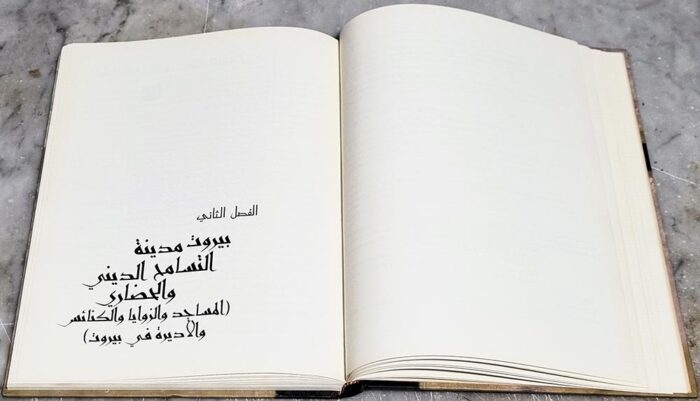 الفصل الثاني
بيروت مدينة
التسامح الديني
والحضاري
(المساجد والزوايا والكنائس
والأديرة في بيروت)